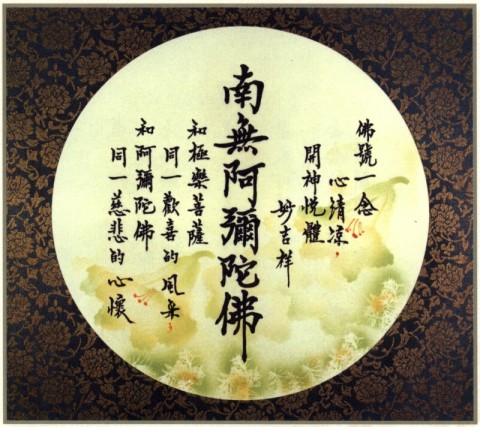 佛號一念
心清涼
開神悅體
妙吉祥
南無阿彌陀佛
和極樂菩薩
同一歡喜的風采
和阿彌陀佛
同一慈悲的心懷